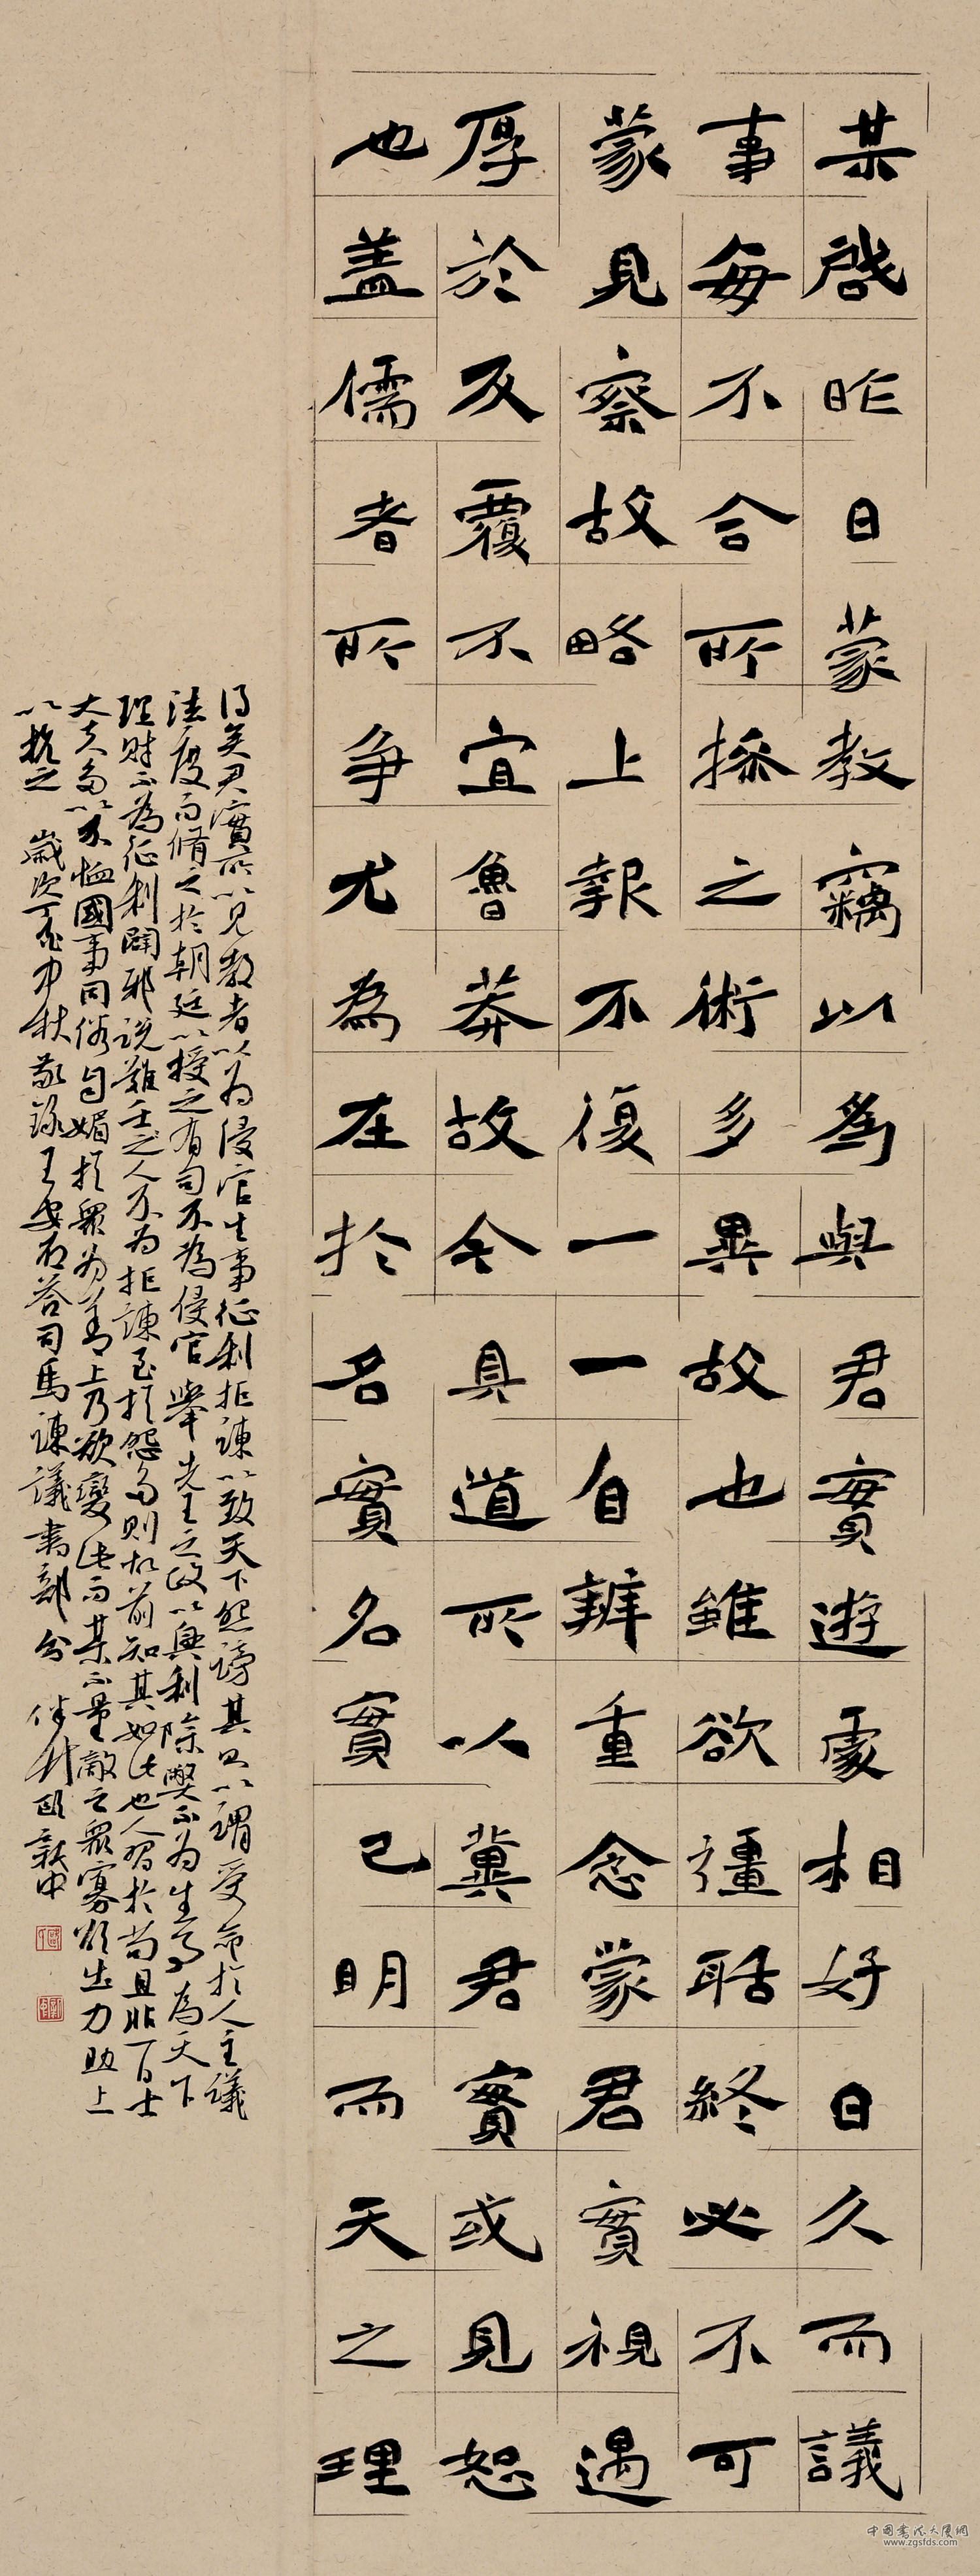 某啓昨日蒙教竊以為與君實遊處相好日久而議
事每不合所操之術多異故也雖欲彊聒終必不可
蒙見察故略上報不復一一自辨重念蒙君實視遇
厚於反覆不宜魯莽故今具道所以冀君實或見恕
也盖儒者所爭尤為在於名實名實已明而天之理
得矣君實所以見教者以為侵官生事征利拒諫以致天下怨謗其以謂受命於人主議
法度而脩之於朝廷以授之有司不為侵官舉先王之政以興利除弊不為生事為天下
理財不為征利闢邪說難壬之人不為拒諫至於怨多則故前知其如此也人習於苟且非一日士
大夫多以不恤國事同俗自媚於眾為善上乃欲變此而某不量敵之眾寡欲出力助上
以抗之 歲次丁酉中秋敬錄王安石答司馬諫議書部分
中国书法大厦网
www.zgsfds.com